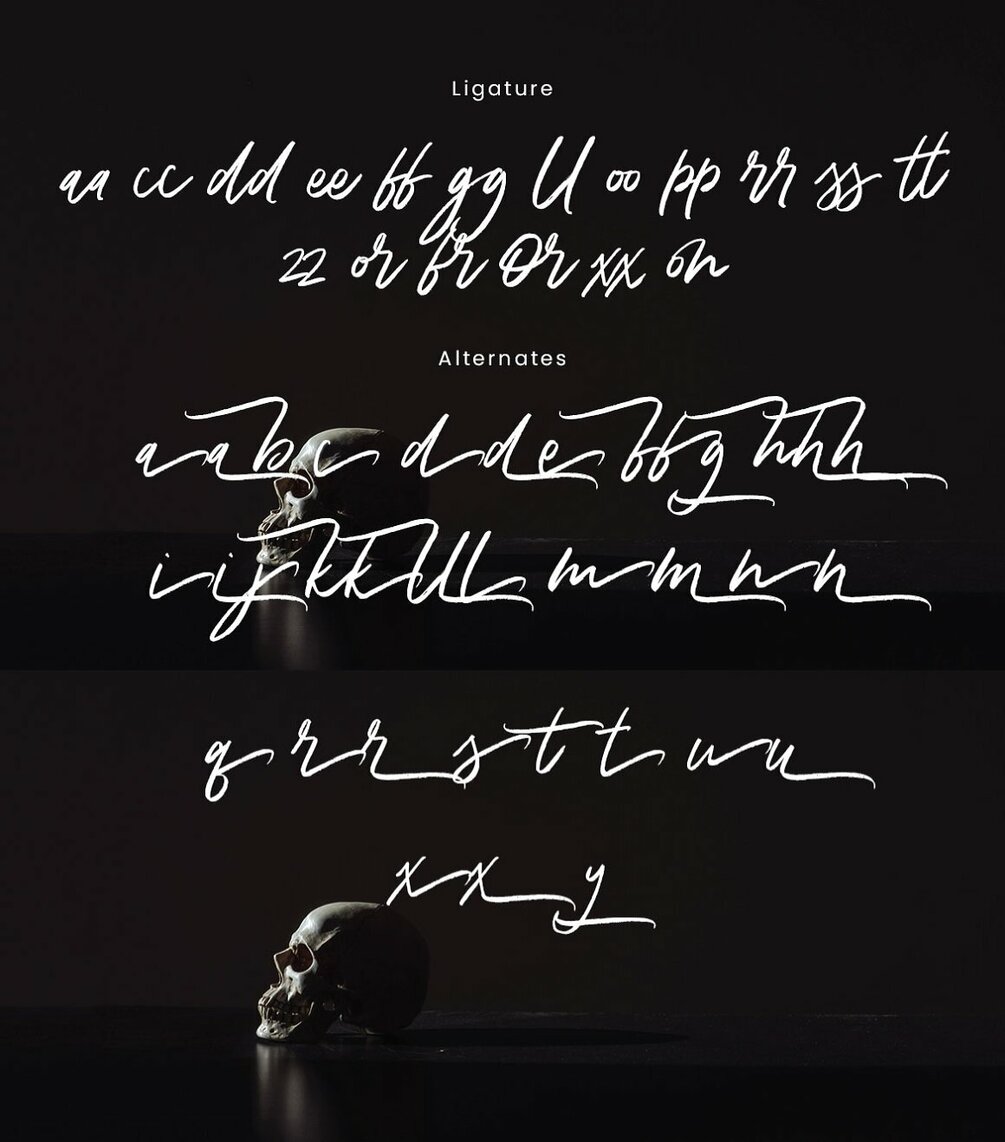 Ligature
aa cc dd ee ff gg ll oo pp rr ss tt
zz or fr Or xx on
Alternates
a a b c d d e f f g h h h
i i j k k l l m m n n
q r r s t t u u
x x y